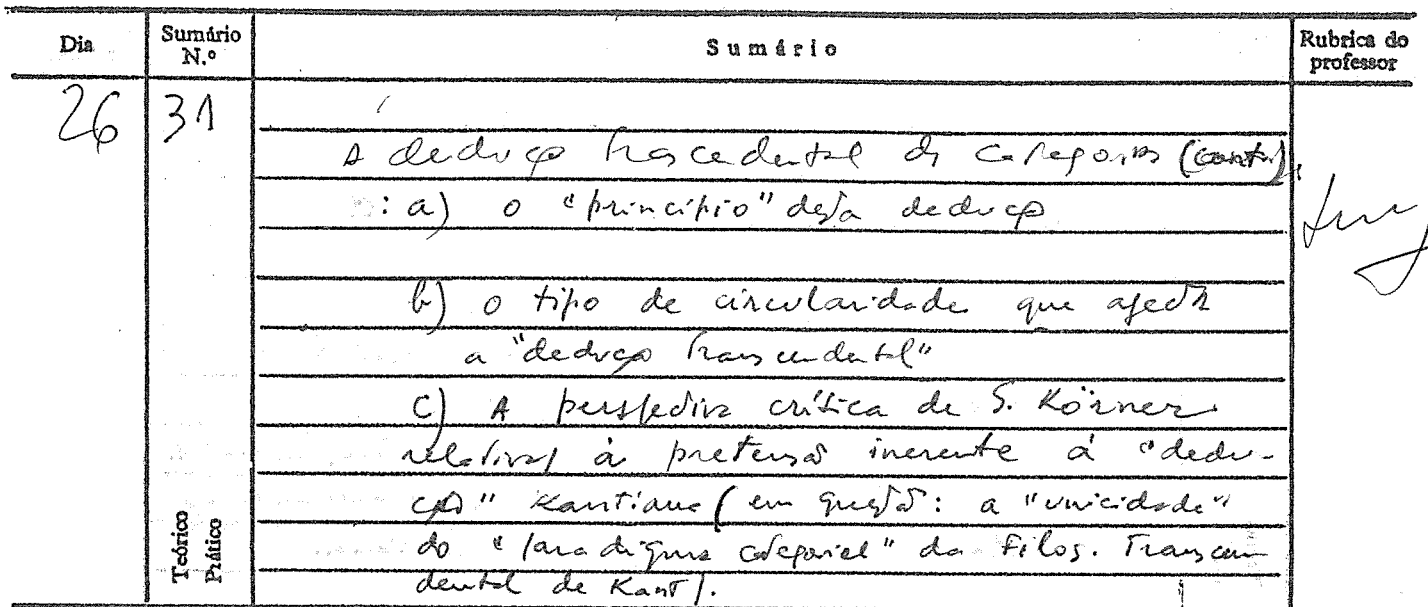 Dia Sumário N.º Sumário Rubrica do professor
26 31
A dedução trascedental das categorias (cont.)
: a) o "princípio" desta dedução
b) o tipo de circularidade que afecta
a "dedução transcendental"
c) A perspectiva crítica de S. Körner
relativa/ à pretensão inerente à "dedu-
ção" Kantiana (em questão: a "unicidade"
do "paradigma categorial" da Filos. Transcen
dental de Kant).
Teórico
Prático